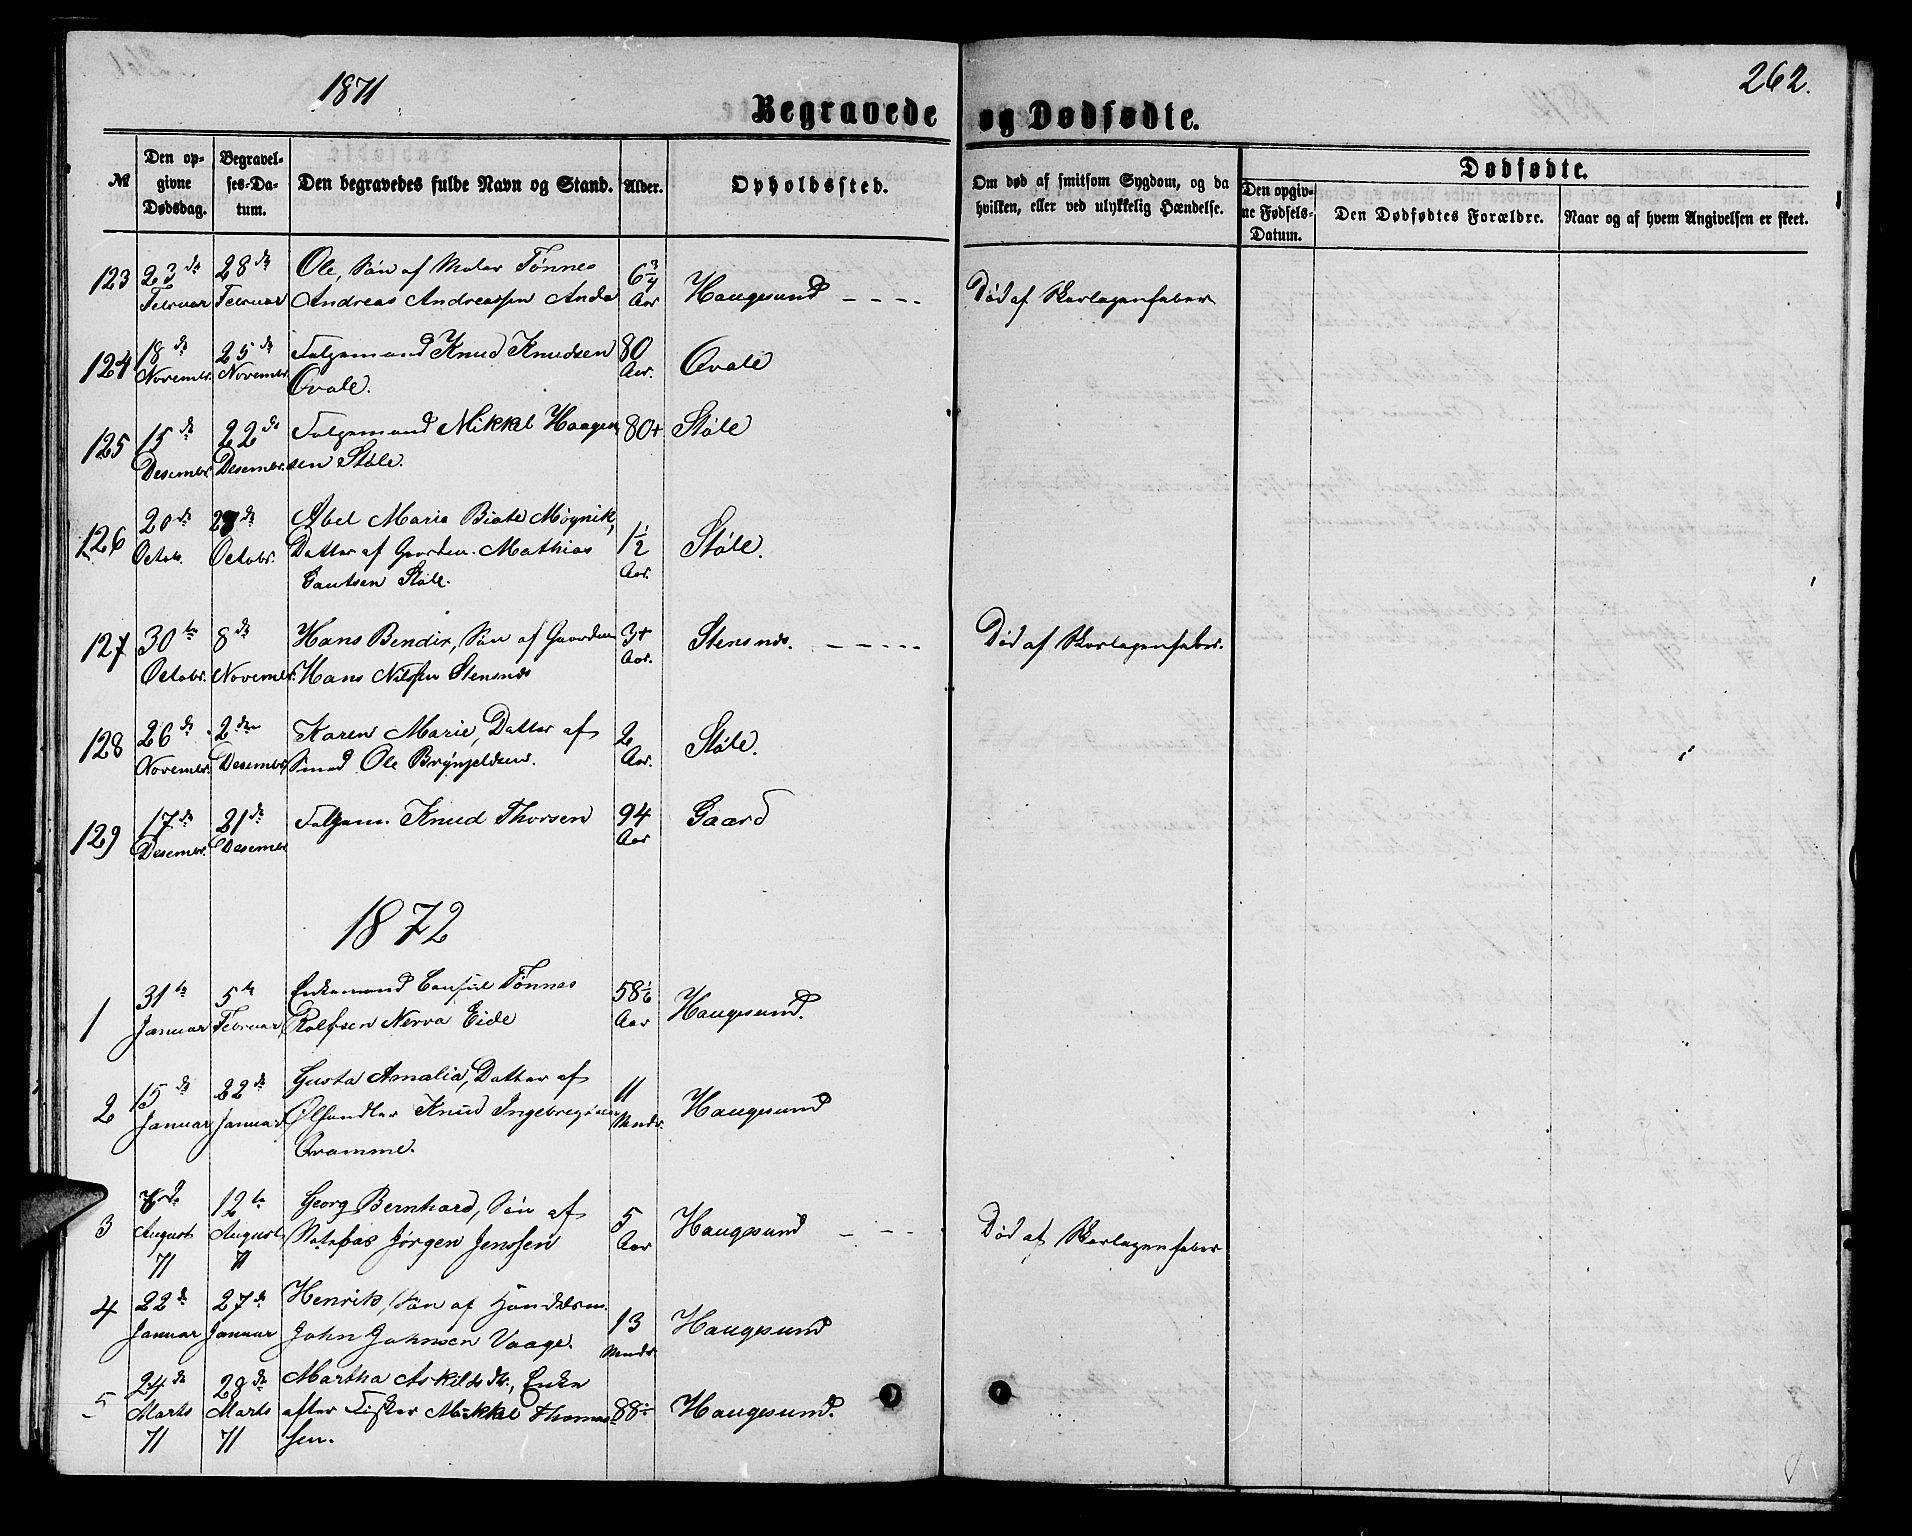 1871
262.
Begravede og Dødfødte.
№
Den opgivne Dødsdag.
Begravelses-Datum.
Den begravedes fulde Navn og Stand.
Alder.
Opholdssted.
Om død af smitsom Sygdom, og da hvilken, eller ved ulykkelig Hændelse.
Dødfødte.
Den opgivne Fødsels-Datum.
Den Dødfødtes Forældre.
Naar og af hvem Angivelsen er skeet.
123 23de 28de Ole, Søn af Maler Tønnes 6 3/4 Haugesund Død af Skarlagenfeber
Februar Februar Andreas Andreassen Anda Aar
124 18de 25de Følgemand Knud Knudsen 80 Qvale
Novembr. Novembr. Qvale. Aar.
125 15de 22de Følgemand Mikkel Haagen 80+ Støle
Desembr. Desembr. sen Støle.
126 20de 28de Abel Maria Biate Møgnik, 1 1/2 Støle.
Octob. Octobr. Datter af Gaardm. Mathias Aar.
Gautsen Støle.
127 30te 8de Hans Bendix, Søn af Gaardm 3+ Stensnds. Død af Skarlagenfeber.
Octobr. Novembr. Hans Nilssen Stensnds Aar.
128 26de 2den Karen Marie, Datter af 2 Støle.
Novembr. Desembr. Smed Ole Brynjeldsen. Aar.
129 17de 21de Følgem. Knud Thorsen 94 Gaard
Desembr. Desembr. Aar
1872
1 31te 5te Enkemand Consul Tønnes 58 1/6 Haugesund.
Januar Februar Rolfsen Nerva Eide Aar
2 15de 22de Gusta Amalia, Datter af 11 Haugesund
Januar Januar Ølhandler Knud Ingebregtsen Mndr.
Qvamme.
3 12te Georg Bernhard, Søn af 5 Haugesund Død af Skarlagenfeber
August August Notebas Jørgen Jenssen Aar
71 71
4 22de 27de Henrik, Søn af Handelsm. 13 Haugesund
Januar Januar John Johnsen Vaage. Mndr.
5 24de 28de Martha Askildsdtr., Enke 88 Haugesund.
Marts Marts efter Fisker Mikkel Thomas
71 71 sen.